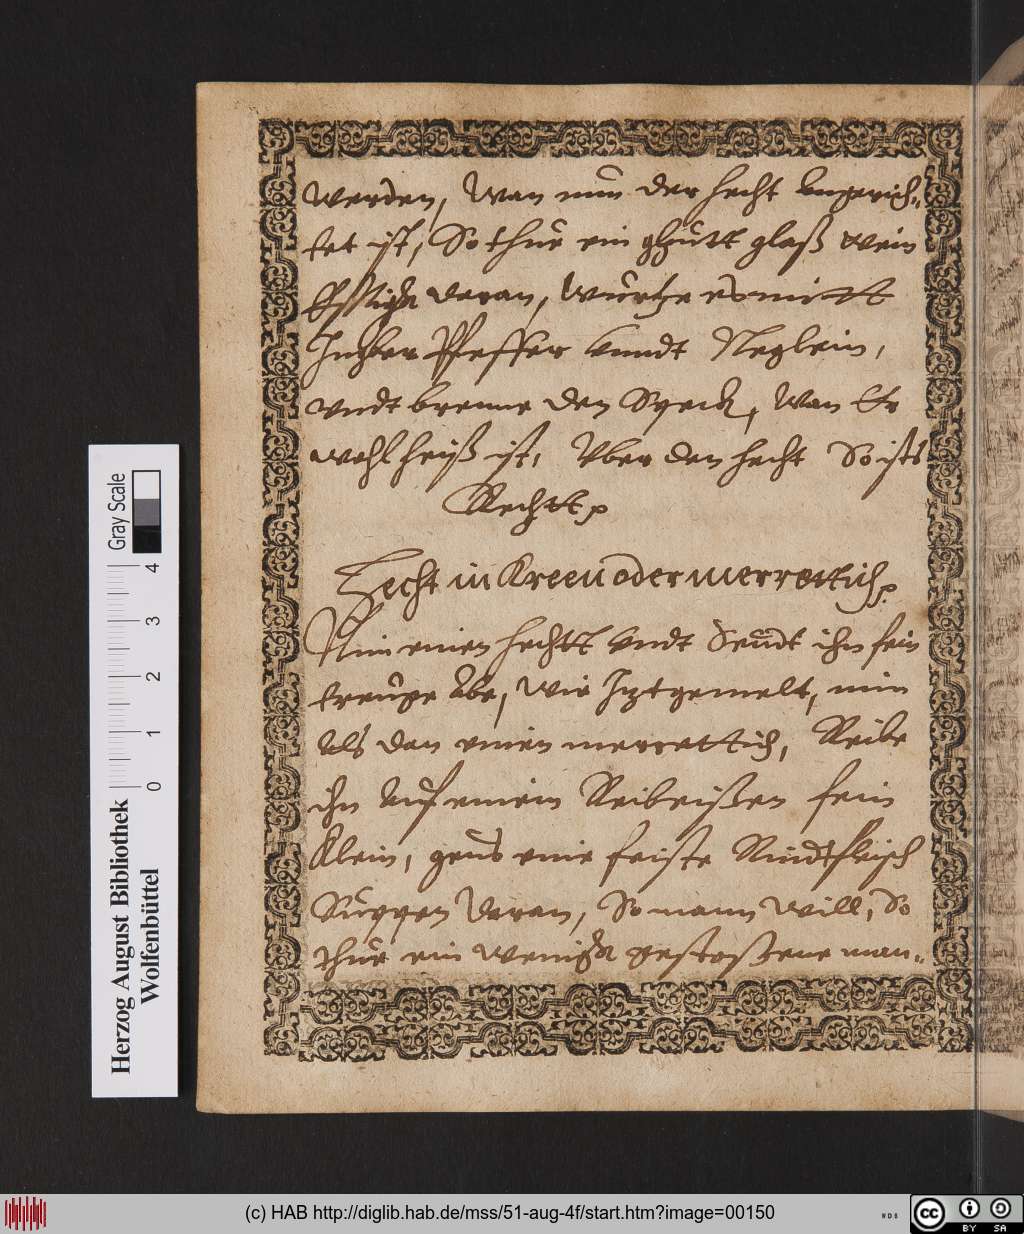 werden, Wan nun der hecht angerich„
tet ist, So thue ein gutt glaß wein
Essigk daran, würtze es mitt
Ingber Pfeffer vnndt Neglein,
vndt brenne den Speck, Wan Er
wohl heiß ist, Vber den hecht So ists
Rechtt
Hecht in Kreen oder merrettich
Nim einen hechtt vndt Seudt ihn fein
treuge Abe, Wie Jtztgemelt, nim
Als dan einen merrettich, Reibe
ihn Auf einem Reibeißen fein
Klein, geus eine feiste Rindtfleisch
Suppen daran, So mann Will, So
thue ein Wenigk gestoßene man„
Herzog August Bibliothek
Wolfenbüttel
Gray Scale
0 1 2 3 4
(c) HAB http://diglib.hab.de/mss/51-aug-4f/start.htm?image=00150
WDB
cc BY SA